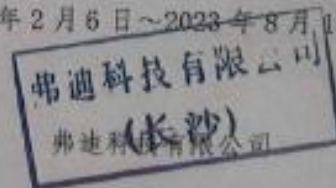 年2月6日~2023年8月
弗迪科技有限公司
(长沙)
弗迪科技有限公司